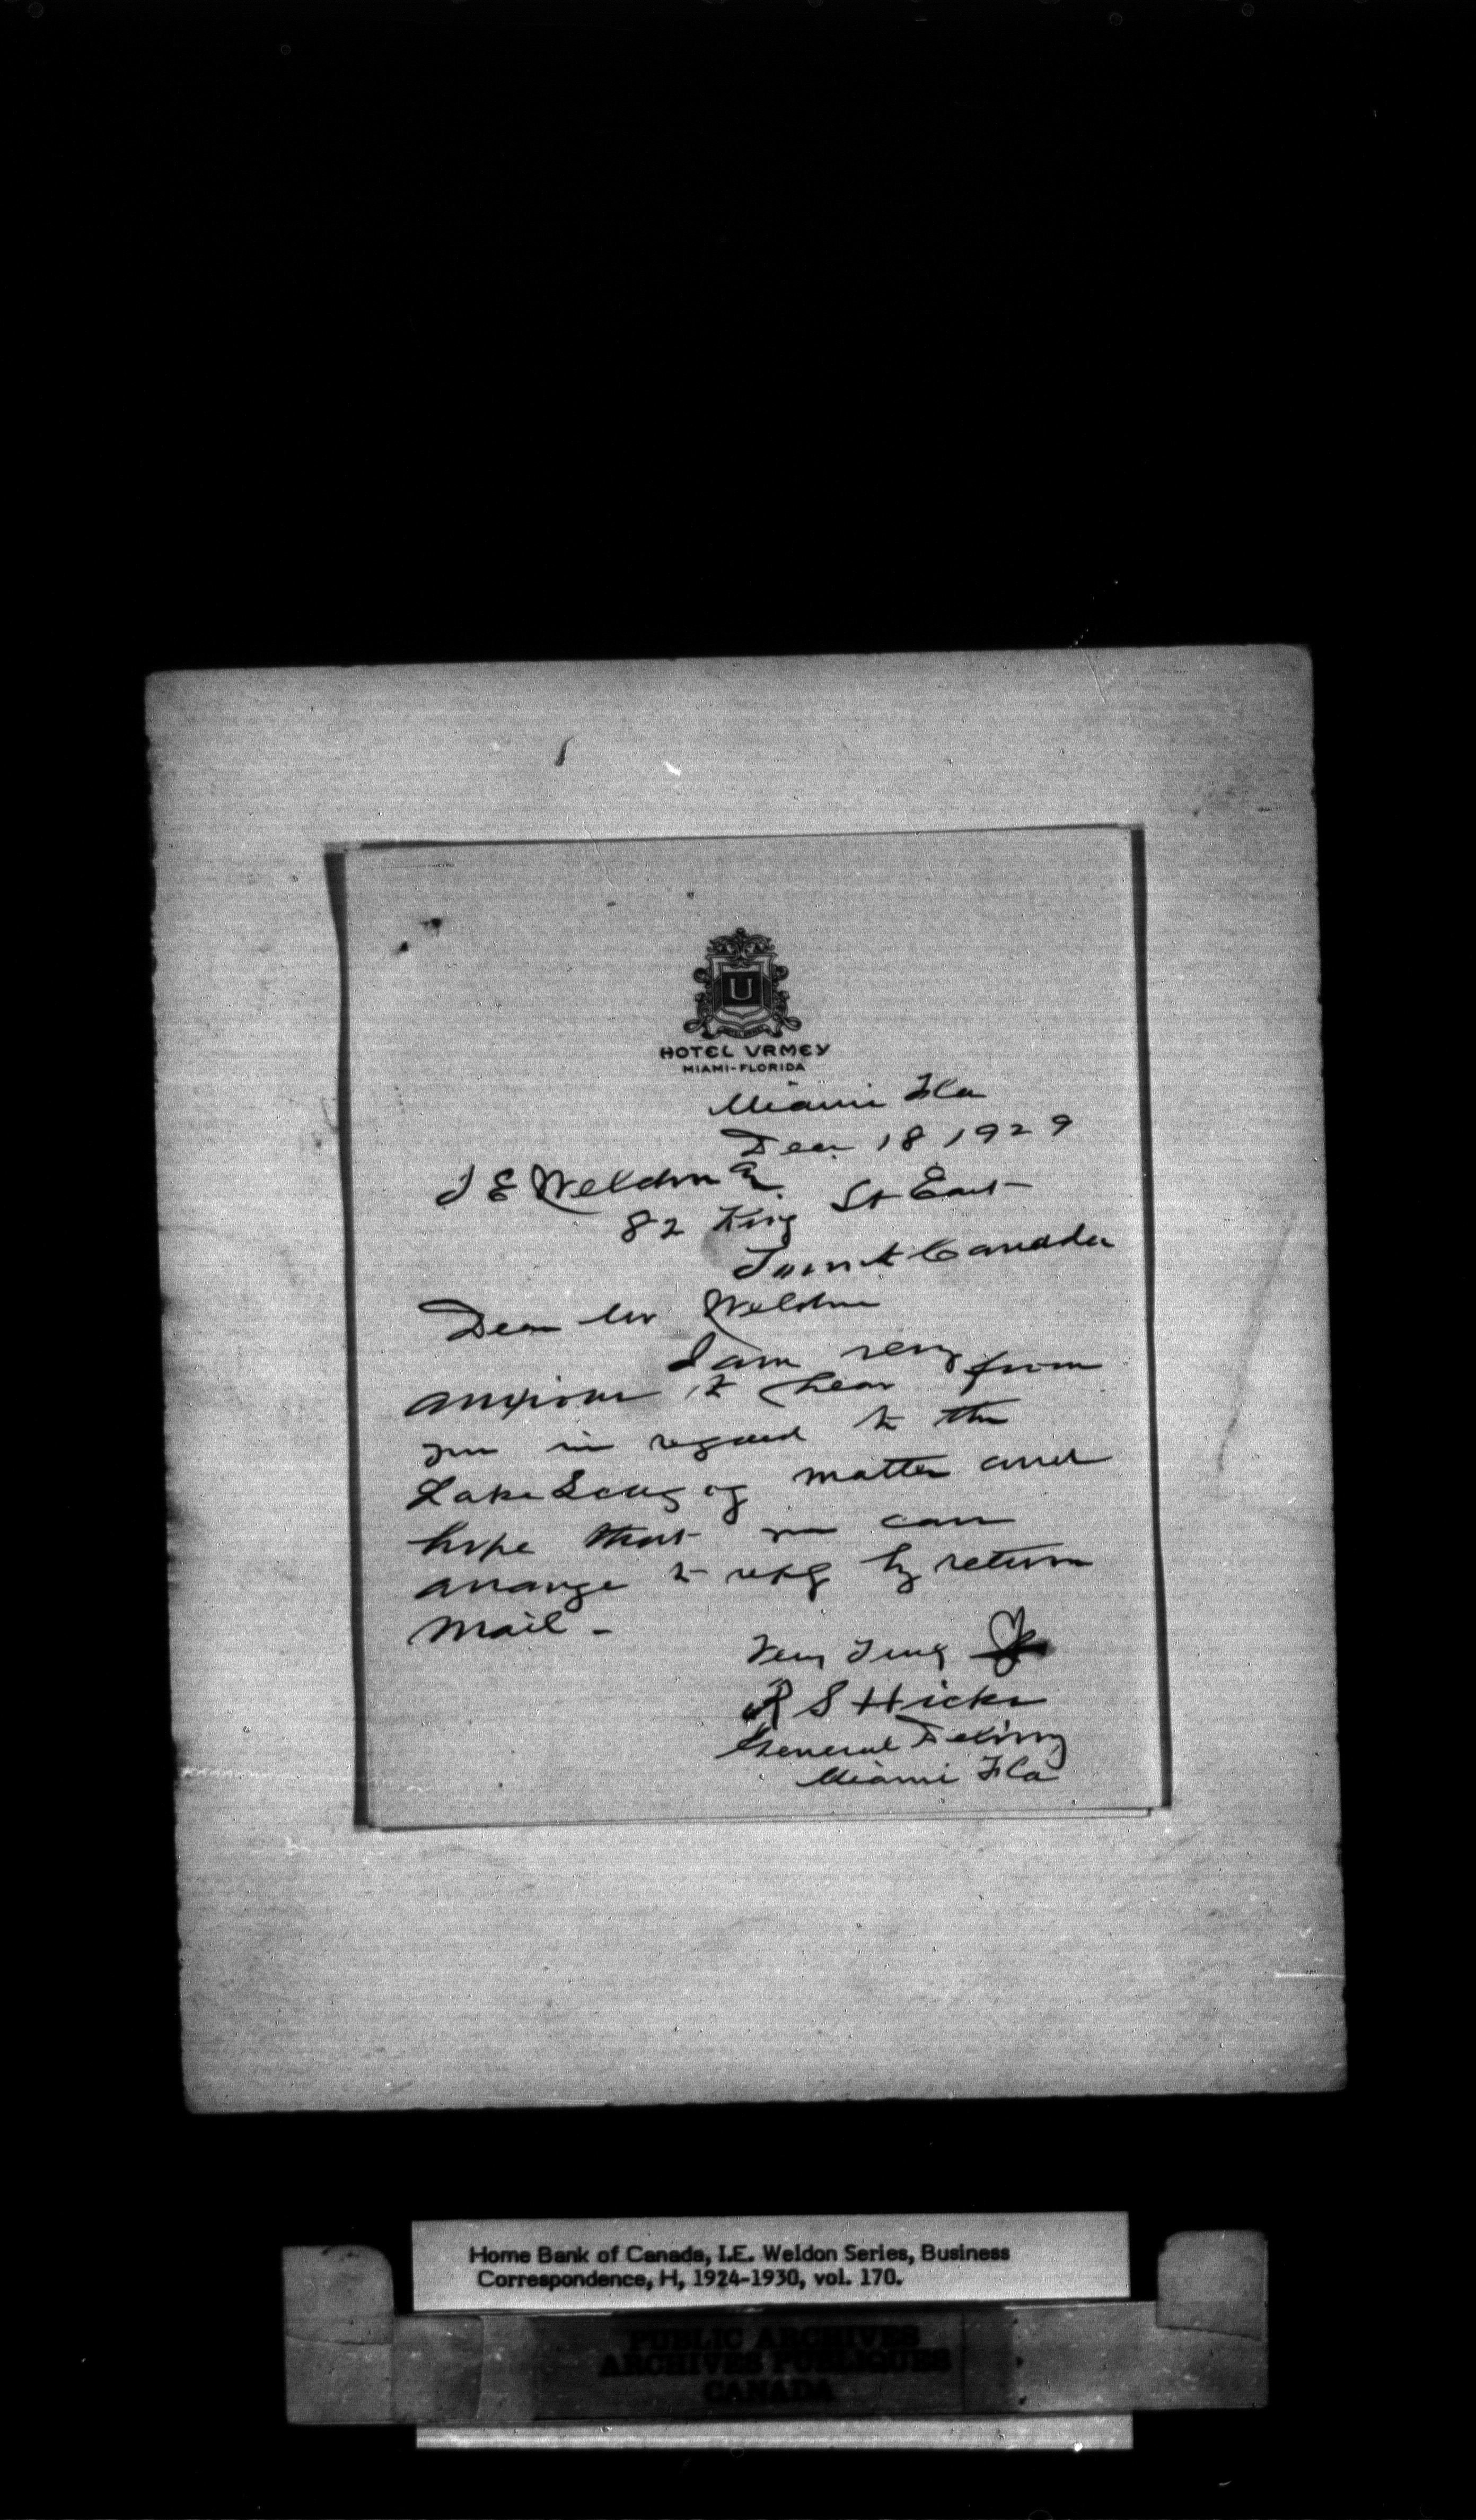 U
HOTEL URMEY
MIAMI-FLORIDA
Miami Fla
Dec 18 1929
I E Weldon
82 King St East
Toronto Canada
Dear Mr Weldon
I am very
anxious to hear from
you in regard to the
Lake Scugog matter and
hope that you can
arrange to reply by return
mail -
Very Truly
R S Hicks
General Delivry
Miami Fla
Home Bank of Canada, I.E. Weldon Series, Business
Correspondence, H, 1924-1930, vol. 170.
PUBLIC ARCHIVES
ARCHIVES PUBLIQUES
CANADA